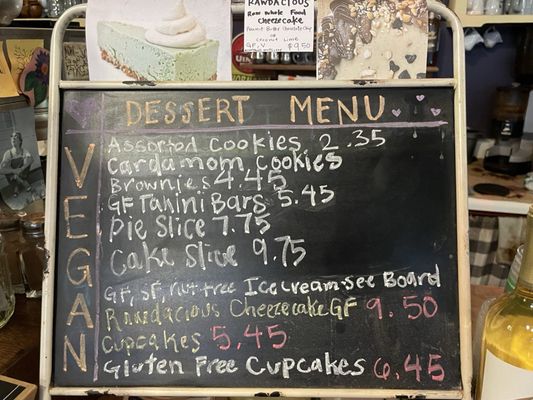 RAWDACIOUS
Raw Whole Food
Cheezecake
Peanut Butter Chocolate Chip
or
Coconut Lime
GF, V $9.50
DESSERT MENU
VEGAN
Assorted Cookies 2.35
Cardamom Cookies
Brownies 4.45
GF Tahini Bars 5.45
Pie Slice 7.75
Cake Slice 9.75
GF, SF, nut free Ice cream-see Board
Rawdacious Cheezecake GF 9.50
Cupcakes 5.45
Gluten Free Cupcakes 6.45